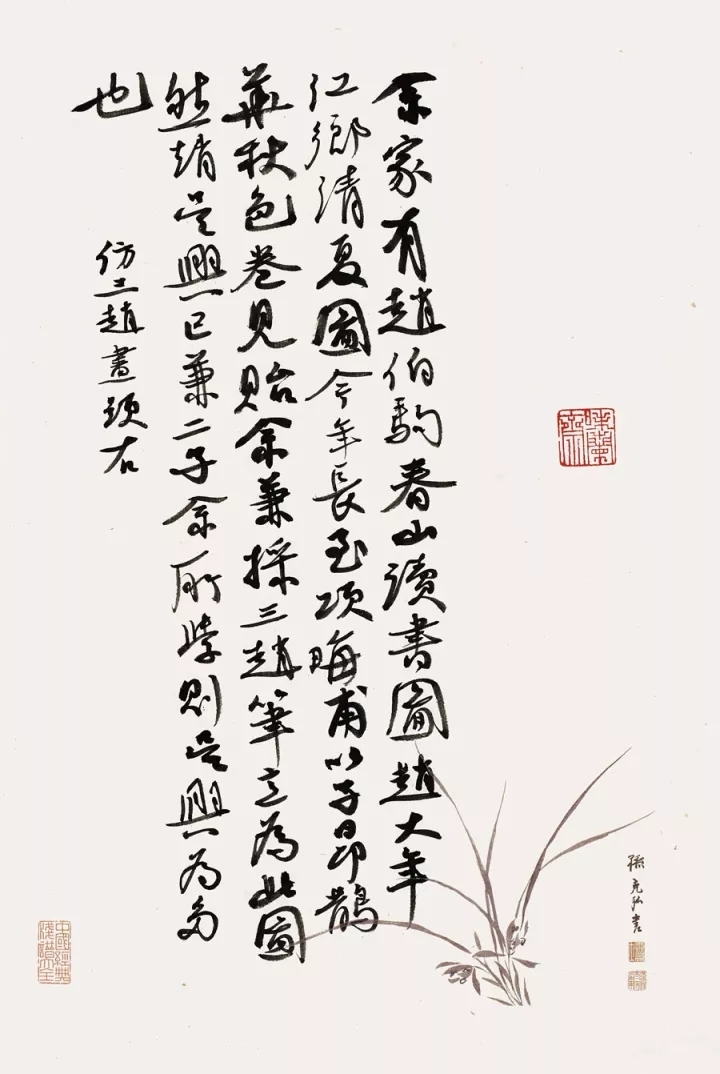 余家有趙伯駒春山讀書圖趙大年
江鄉清夏圖今年長至項晦甫以子昂鵲
華秋色卷見貽余兼採三趙筆意為此圖
然趙吳興已兼二子余所學則吳興為多
也
仿三趙畫題右
味蘭齋
孫克弘
中國經典